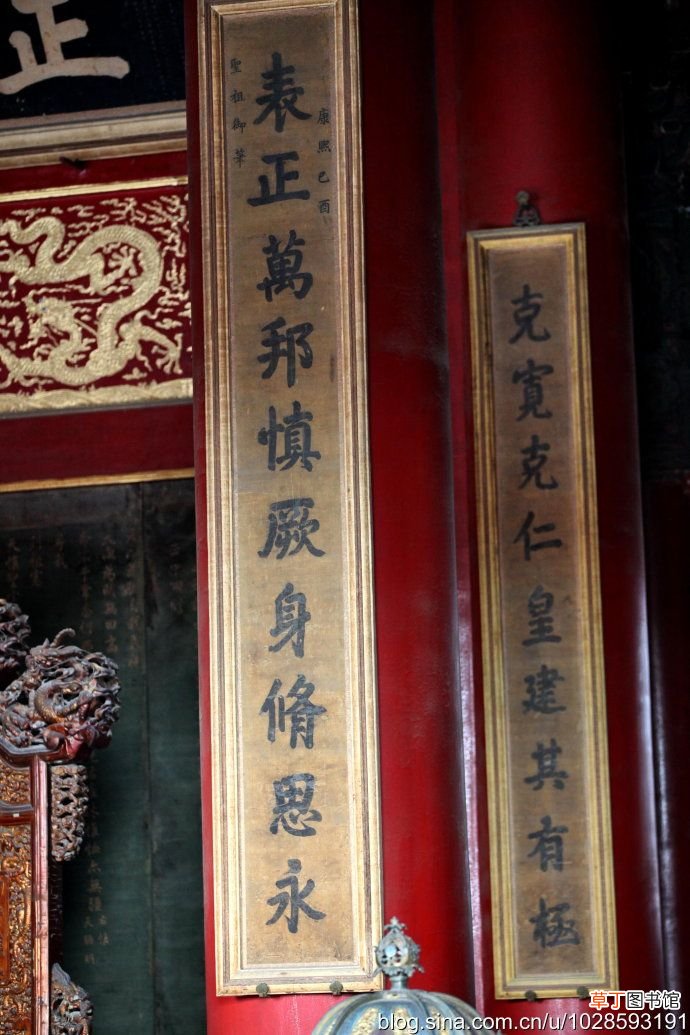 正
康熙己酉
表正萬邦慎厥身脩思永
聖祖御筆
克寬克仁皇建其有極
草丁图书馆
blog.sina.com.cn/u/1028593191